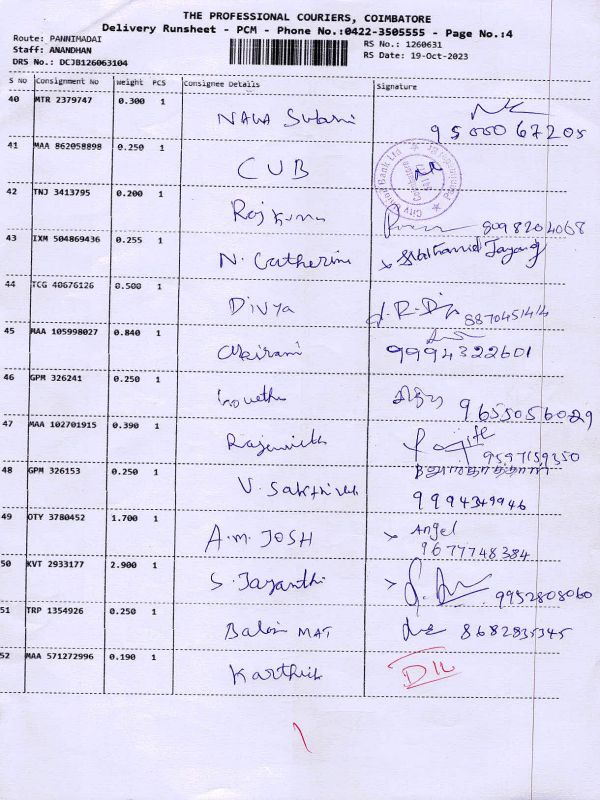 THE PROFESSIONAL COURIERS, COIMBATORE
Delivery Runsheet - PCM - Phone No.:0422-3505555 - Page No.:4
Route: PANNIMADAI
RS No.: 1260631
Staff: ANANDHAN
RS Date: 19-Oct-2023
DRS No.: DCJB126063104
S No Consignment No Weight PCS Consignee Details Signature
40 MTR 2379747 0.300 1
9500067205
41 MAA 862058898 0.250 1 CUB
42 TNJ 3413795 0.200 1 Raj Kumar 8098204068
43 IXM 504869436 0.255 1 N. Catherine
44 TCG 40676126 0.500 1 Divya 8870451414
45 MAA 105998027 0.840 1 Akirami 9994322601
46 GPM 326241 0.250 1 9655056029
47 MAA 102701915 0.390 1 9597159350
48 GPM 326153 0.250 1 V. Sakthivel
49 OTY 3780452 1.700 1 A.M. JOSH Angel
9677748384
50 KVT 2933177 2.900 1 S. Jayanthi 9952808060
51 TRP 1354926 0.250 1 MAT 8682835345
52 MAA 571272996 0.190 1 Karthick